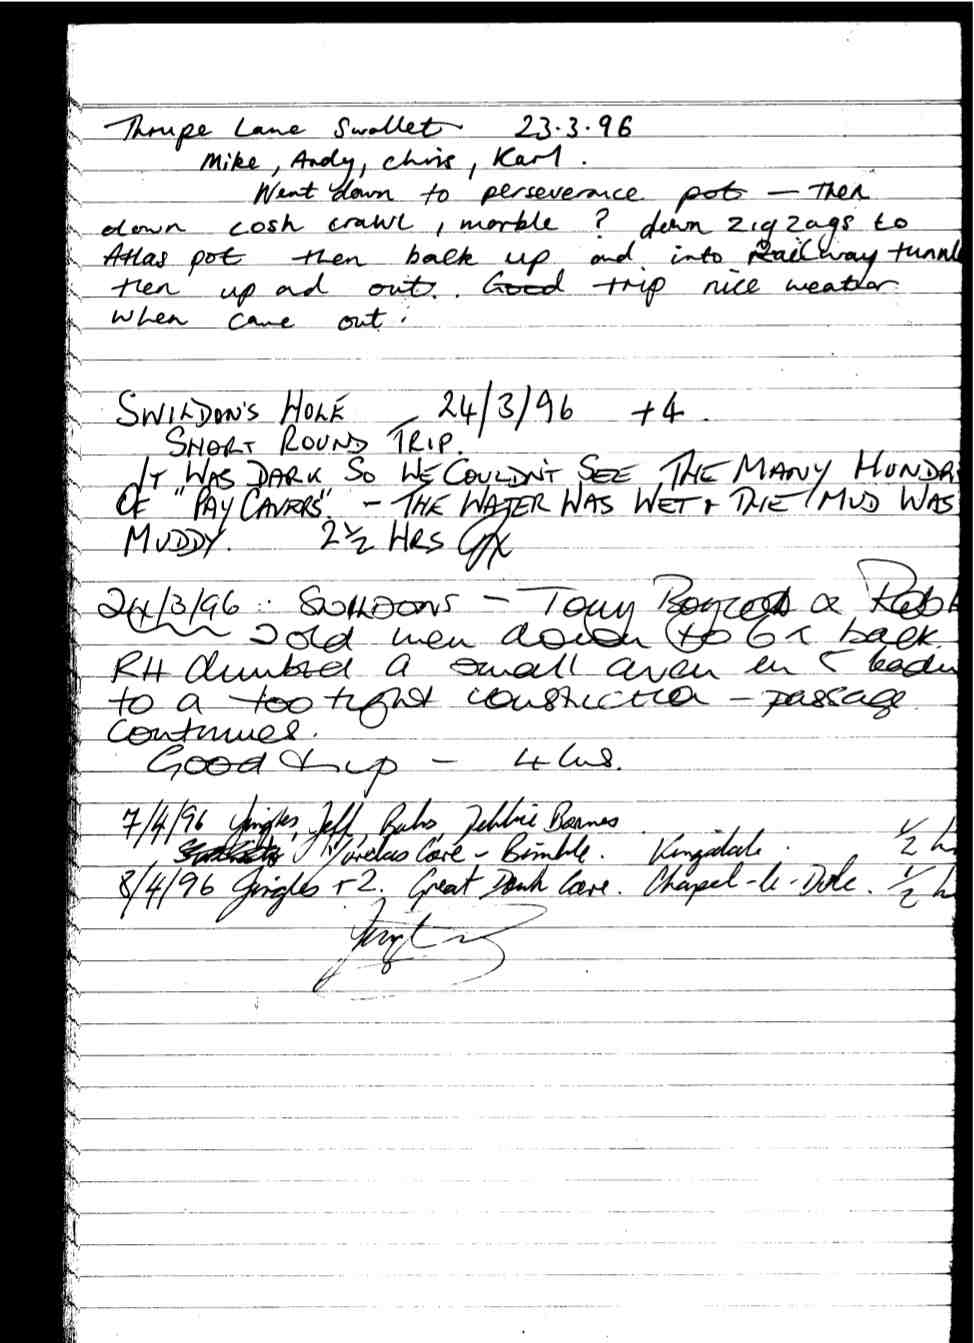 Thrupe Lane Swallet 23.3.96
Mike, Andy, Chris, Karl.
Went down to perseverance pot – then
down cosh crawl, marble ? down zig zags to
Atlas pot then back up and into Railway tunnel
then up and out. Good trip nice weather
when came out.
SWILDON'S HOLE 24/3/96 +4.
SHORT ROUND TRIP.
IT WAS DARK SO WE COULDN'T SEE THE MANY HUNDR
OF "PAY CAVERS". – THE WATER WAS WET + THE MUD WAS
MUDDY. 2½ HRS
24/3/96 : SWILDONS – Tony Boycott & Rob
2 old men down to 6 & back.
RH climbed a small aven in 5 leadin
to a too tight constriction – passage
continues.
Good trip – 4 hrs.
7/4/96 Jingles, Jeff, Babs, Debbie Barnes
Yordas Cave – Bimble. Kingsdale. ½ h
8/4/96 Jingles + 2. Great Douk Cave. Chapel-le-Dale. ½ h